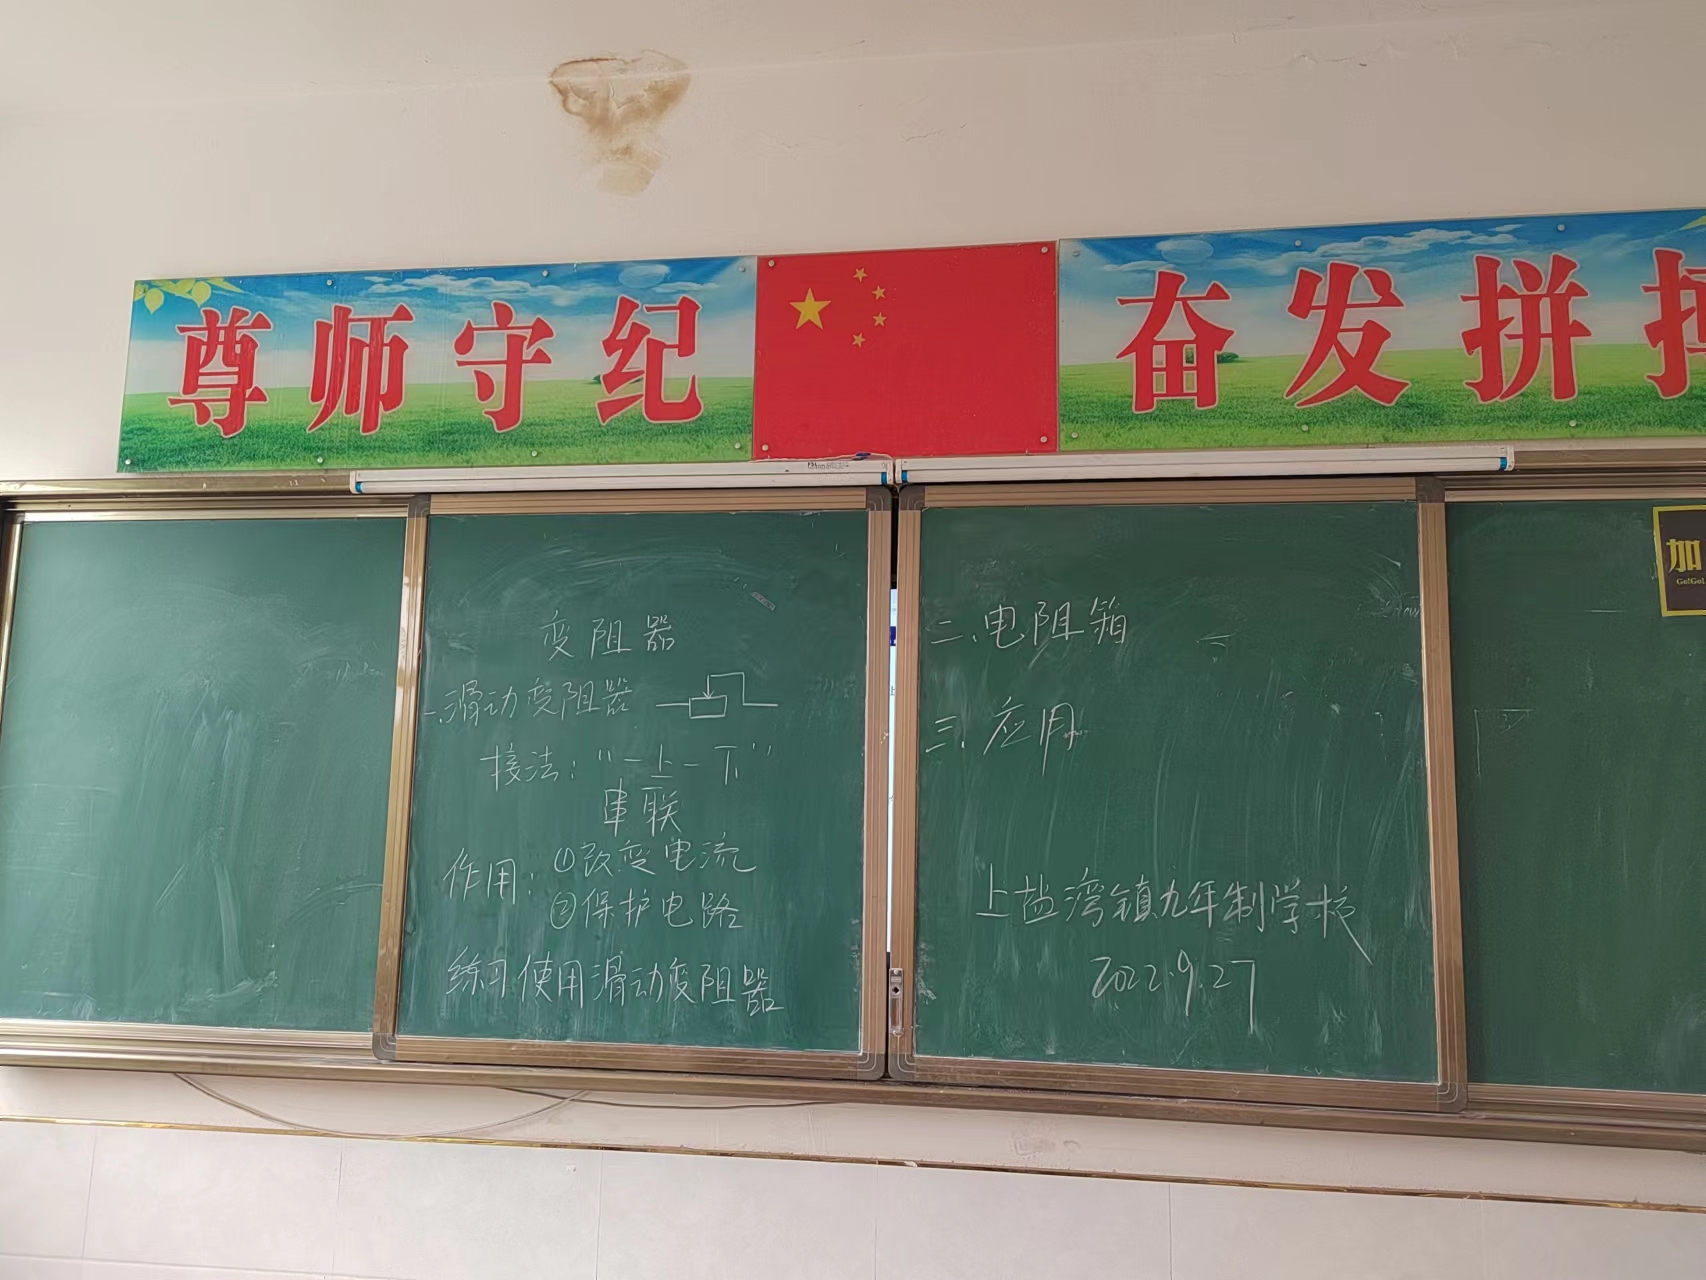 尊师守纪
奋发拼搏
加
Go!Go!
变阻器
一、滑动变阻器
接法：“一上一下”
串联
作用：①改变电流
②保护电路
练习使用滑动变阻器
二、电阻箱
三、应用
上盐湾镇九年制学校
2022.9.27